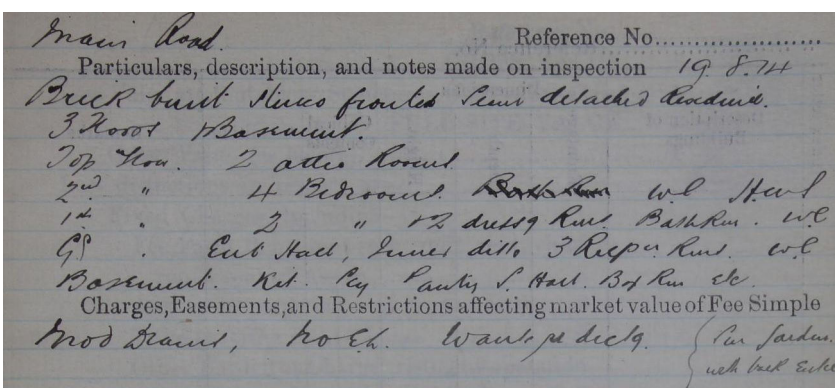 Main Road. Reference No.....................
Particulars, description, and notes made on inspection 19.8.14
Brick built Stucco fronted Semi detached Residence.
3 Floors & Basement.
Top Floor. 2 attic Rooms.
2nd " 4 Bedrooms. Bath Rm W.C.
1st " 2 " & 2 dressg Rms. Bath Rm. W.C
Gd " Ent Hall, Inner ditto 3 Recepn Rms. W.C
Basement. Kit. Pantry S. Hall. Box Rm etc.
Charges, Easements, and Restrictions affecting market value of Fee Simple
Mod Drains, No E.L. Wants decg.
garden.
with back